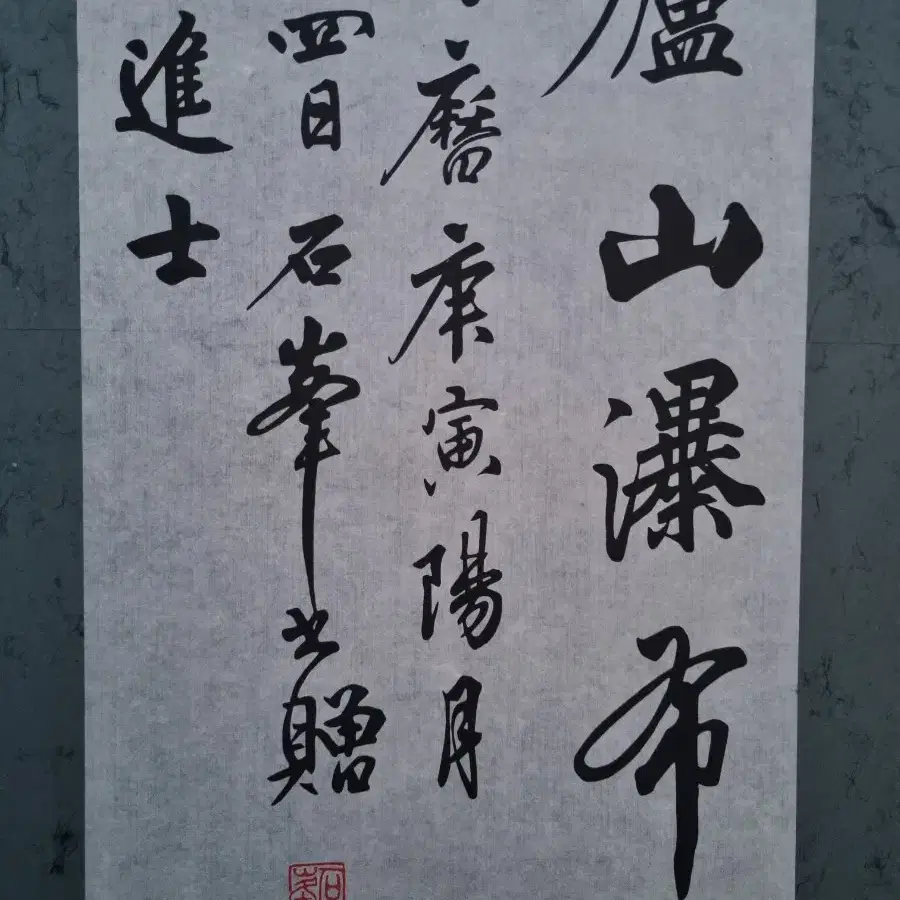 廬山瀑布
曆庚寅陽月
四日石峯書贈
進士
石峯